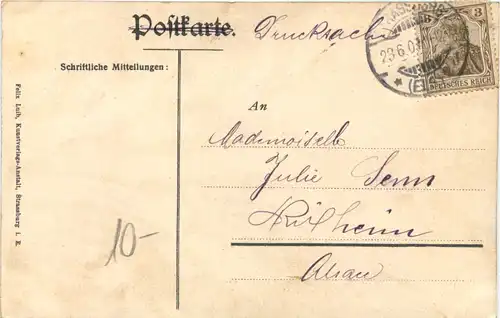 Postkarte. Drucksache
3
DEUTSCHES REICH
23.6.0
Schriftliche Mitteilungen:
An
Mademoiselle
Julie Senn
Elsass
Felix Luib, Kunstverlags-Anstalt, Strassburg i. E.
10-